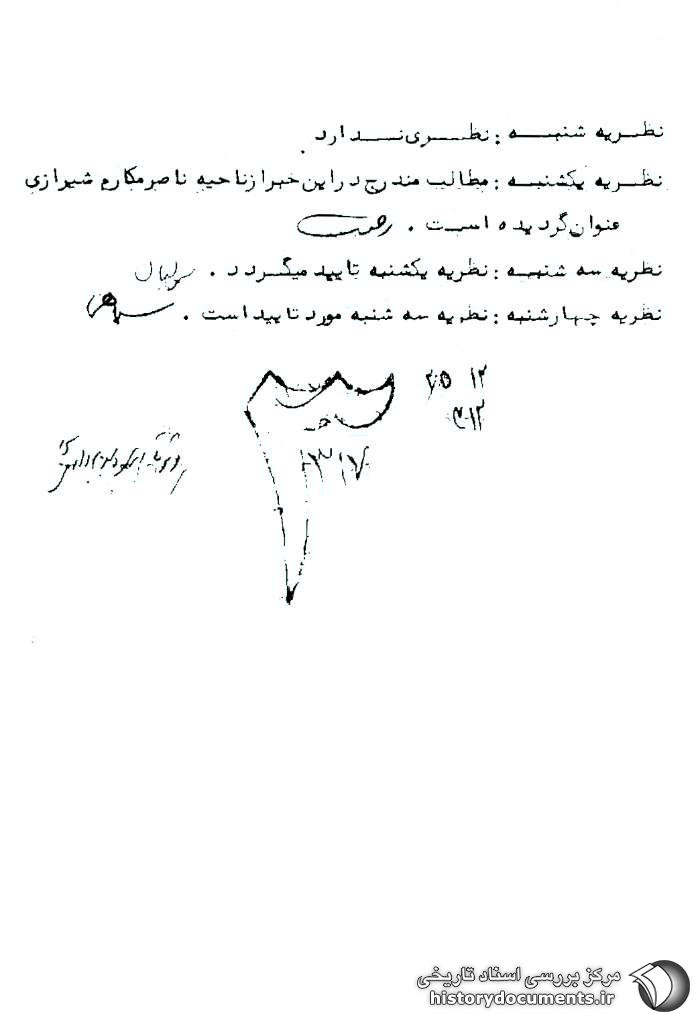 نظریه شنبه : نظری ندارد .
نظریه یکشنبه : مطالب مندرج در این خبر از ناحیه ناصر مکارم شیرازی
عنوان گردیده است .
نظریه سه شنبه : نظریه یکشنبه تایید میگردد .
نظریه چهارشنبه : نظریه سه شنبه مورد تایید است .
مرکز بررسی اسناد تاریخی
historydocuments.ir